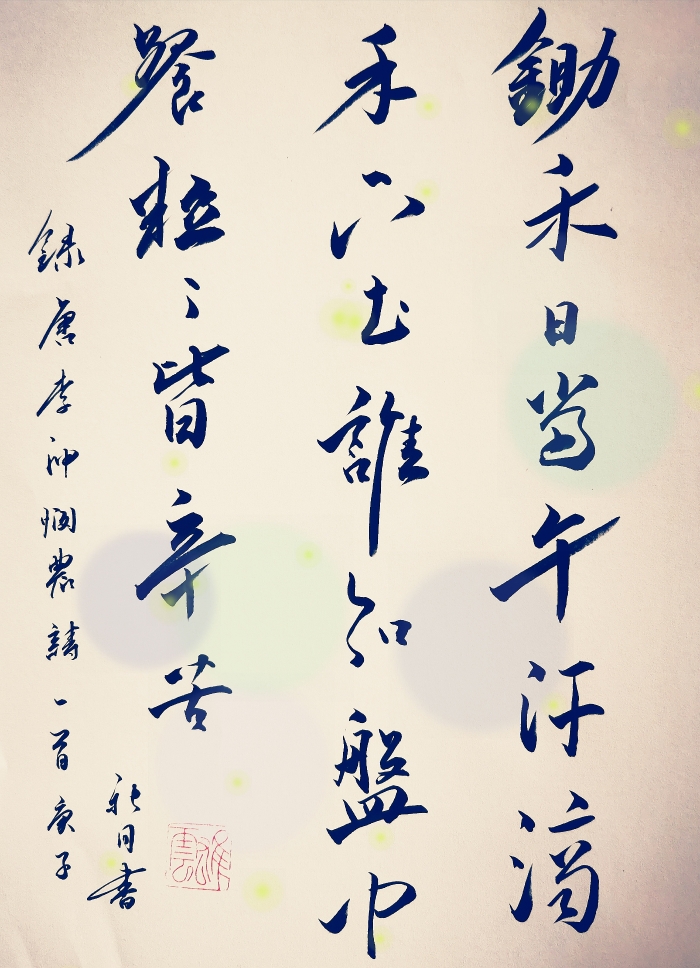 鋤禾日當午汗滴
禾下土誰知盤中
餐粒〻皆辛苦
錄唐李紳憫農詩一首庚子
月書